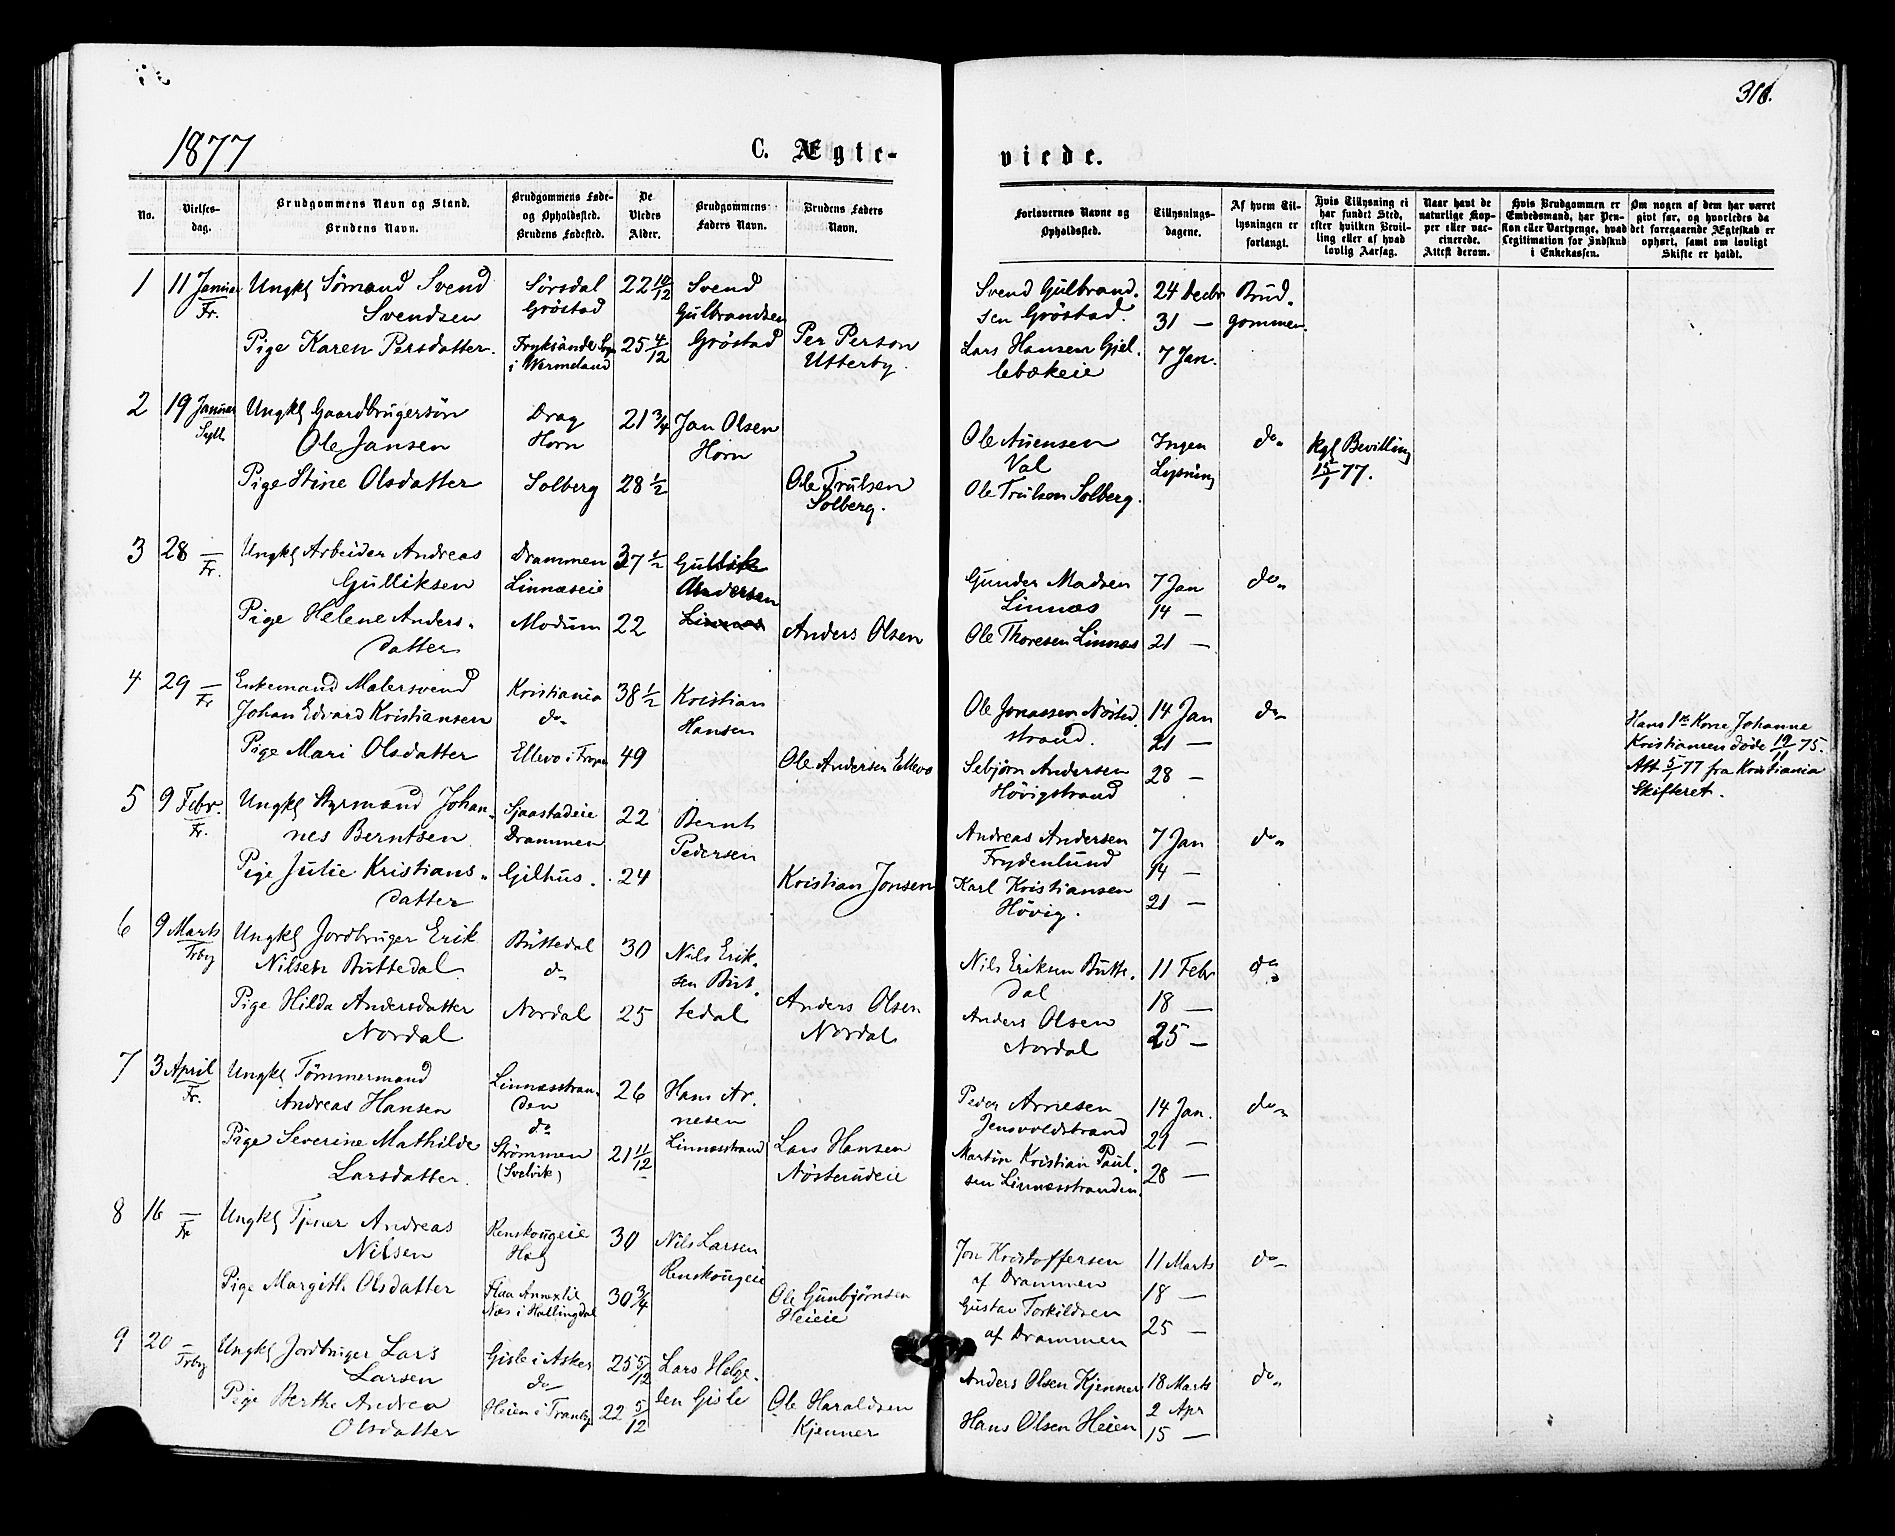 318.
1877
C. Ægte-
viede.
No.
Vielses-
dag.
Brudgommens Navn og Stand.
Brudens Navn.
Brudgommens Føde-
og Opholdssted.
Brudens Fødested.
De
Viedes
Alder.
Brudgommens
Faders Navn.
Brudens Faders
Navn.
Forlovernes Navne og
Opholdssted.
Tillysnings-
dagene.
Af hvem Til-
lysningen er
forlangt.
Hvis Tillysning ei
har fundet Sted,
efter hvilken Bevil-
ling eller af hvad
lovlig Aarsag.
Naar havt de
naturlige Kop-
per eller vac-
cinerede.
Attest derom.
Hvis Brudgommen er
Embedsmand, har Pen-
sion eller Vartpenge, hvad
Legitimation for Indskud
i Enkekassen.
Om nogen af dem har været
givt før, og hvorledes da
det foregaaende Ægteskab er
ophørt, samt om lovligt
Skifte er holdt.
1
11 Januar
Fr.
Ungkl Sömand Svend
Svendsen
Pige Karen Persdatter.
Sörsdal
Gröstad
Fryksände Sogn
i Wermeland
22 10/12
25 4/12
Svend
Gulbrandsen
Gröstad
Per Person
Utterby.
Svend Gulbrand-
sen Gröstad.
Lars Hansen Gjel-
lebækeie
24 Decbr
31 —
7 Jan.
Brud-
gommen.
2
19 Januar
Syll.
Ungkl Gaardbrugersön
Ole Jansen
Pige Stine Olsdatter
Drag
Horn
Solberg
21 3/4
28 1/2
Jan Olsen
Horn
Ole Trulsen
Solberg.
Ole Auensen
Val
Ole Trulsen Solberg.
Ingen
Lysning
do
Kgl Bevilling
15/1 77.
3
28 —
Fr.
Ungkl Arbeider Andreas
Gulliksen
Pige Helene Anders-
datter
Drammen
Linnæseie
Modum
37 1/2
22
Gullik
Andersen
Linnæs
Anders Olsen
Gunder Madsen
Linnæs
Ole Thoresen Linnæs
7 Jan
14 —
21 —
do
4
29 —
Fr
Enkemand Malersvend
Johan Edvard Kristiansen
Pige Mari Olsdatter
Kristiania
do
Ellevo i
38 1/2
49
Kristian
Hansen
Ole Andersen Ellevo
Ole Jonassen Nösted
strand.
Sebjörn Andersen
Hövigstrand
14 Jan
21 —
28 —
do
Hans 1ste Kone Johanne
Kristiansen döde 19/11 75.
Att 5/1 77 fra Kristiania
Skifteret.
5
9 Febr.
Fr.
Ungkl Styrmand Johan-
nes Berntsen
Pige Julie Kristians-
datter
Sjaastadeie
Drammen
Gilhus.
22
24
Bernt
Pedersen
Kristian Jonsen
Andreas Andersen
Frydenlund
Karl Kristiansen
Hövig.
7 Jan
14 —
21 —
do
6
9 Marts
Trby
Ungkl Jordbruger Erik
Nilsen Buttedal
Pige Hilda Andersdatter
Nordal
Buttedal
do
Nordal
30
25
Nils Erik-
sen But-
tedal
Anders Olsen
Nordal
Nils Eriksen Butte-
dal
Anders Olsen
Nordal
11 Febr
18 —
25 —
do
7
3 April
Fr.
Ungkl Tömmermand
Andreas Hansen
Pige Severine Mathilde
Larsdatter.
Linnæsstran-
den
do
Strömmen
(Svelvik)
26
21 11/12
Hans Ar-
nesen
Linnæsstrand
Lars Hansen
Nösterudeie
Peder Arnesen
Jensvoldstrand
Martin Kristian Paul-
sen Linnæsstranden.
14 Jan.
21 —
28 —
do
8
16 —
Fr
Ungkl Tjener Andreas
Nilsen
Pige Margith Olsdatter
Renskougeie
Hag
Flaa Annex til
Næs i Hallingdal
30
30 3/4
Nils Larsen
Renskougeie
Ole Gunbjörnsen
Heieie
Jon Kristoffersen
af Drammen
Gustav Torkildsen
af Drammen
11 Marts
18 —
25 —
do
9
20 —
Trby
Ungkl Jordbruger Lars
Larsen
Pige Berthe Andrea
Olsdatter
Gisle i Asker
do
Heien i Tranby
25 5/12
22 5/12
Lars Helge-
sen Gisle
Ole Haraldsen
Kjenner
Anders Olsen Kjenner
Hans Olsen Heien
18 Marts
2 Apr
15 —
do